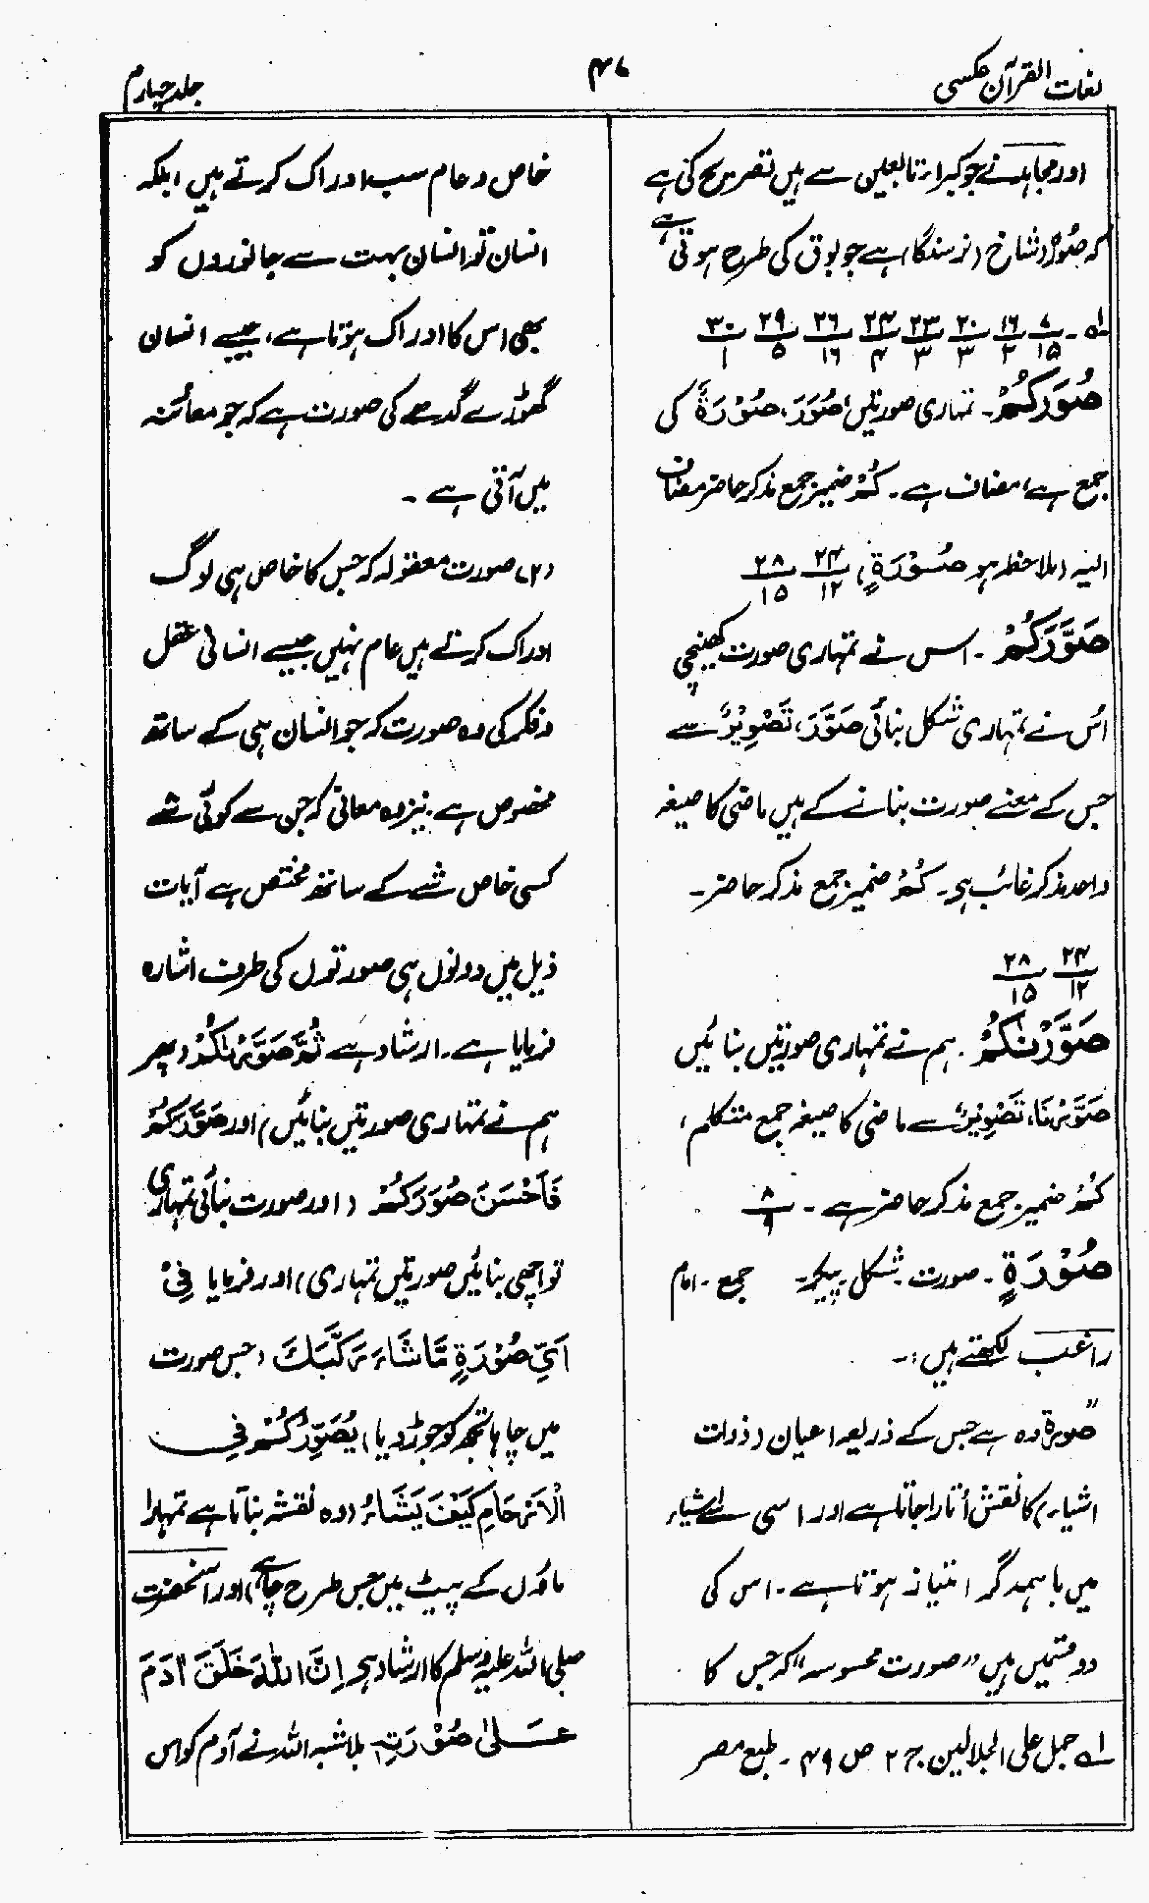 لغات القرآن عکسی
۴۷
جلد چہارم
اور مجاہد نے جو کبار تابعین سے ہیں تصریح کی ہے
کہ صُوْر شاخ (نرسنگا) ہے جو بوق کی طرح ہوتی ہے
لہ۔ ۷/۱۵ ۱۶/۲ ۲۰/۳ ۲۳/۳ ۲۴/۴ ۲۶/۱۶ ۲۹/۵ ۳۰/۱
صُوَرَکُمْ۔ تمہاری صورتیں، صُوَرَ، صُوْرَۃٌ کی
جمع ہے، مضاف ہے۔ کُمْ ضمیر جمع مذکر حاضر مضاف
الیہ (ملاحظہ ہو صُوْرَۃٍ) ۲۴/۱۲ ۲۸/۱۵
صَوَّرَکُمْ۔ اس نے تمہاری صورت کھینچی
اُس نے تمہاری شکل بنائی صَوَّرَ، تَصْوِیْرٌ سے
جس کے معنے صورت بنانے کے ہیں ماضی کا صیغہ
واحد مذکر غائب ہی۔ کُمْ ضمیر جمع مذکر حاضر۔
۲۴/۱۲ ۲۸/۱۵
صَوَّرْنٰکُمْ۔ ہم نے تمہاری صورتیں بنائیں
صَوَّرْنَا، تَصْوِیْرٌ سے ماضی کا صیغہ جمع متکلم،
کُمْ ضمیر جمع مذکر حاضر ہے۔ ۸/۹
صُوْرَۃٍ۔ صورت۔ شکل۔ پیکر۔ جمع۔ امام
راغب لکھتے ہیں:۔
"صورۃ وہ ہے جس کے ذریعہ اعیان (ذوات
اشیاء) کا نقش اُتارا جاتا ہے اور اسی سے اشیاء
میں باہمدگر امتیاز ہوتا ہے۔ اس کی
دو قسمیں ہیں "صورت محسوسہ" کہ جس کا
لہ جمل علی الجلالین ج ۲ ص ۴۹۔ طبع مصر
خاص و عام سب ادراک کرتے ہیں، بلکہ
انسان تو انسان بہت سے جانوروں کو
بھی اس کا ادراک ہوتا ہے، جیسے انسان
گھوڑے گدھے کی صورت ہے کہ جو معائنہ
میں آتی ہے۔
(۲) صورت معقولہ کہ جس کا خاص ہی لوگ
ادراک کرتے ہیں عام نہیں جیسے انسانی عقل
و فکر کی وہ صورت کہ جو انسان ہی کے ساتھ
مخصوص ہے نیز وہ معانی کہ جن سے کوئی شے
کسی خاص شے کے ساتھ مختص ہے آیات
ذیل میں دونوں ہی صورتوں کی طرف اشارہ
فرمایا ہے۔ ارشاد ہے ثُمَّ صَوَّرْنٰکُمْ (پھر
ہم نے تمہاری صورتیں بنائیں) اور صَوَّرَکُمْ
فَاَحْسَنَ صُوَرَکُمْ (اور صورت بنائی تمہاری
تو اچھی بنائیں صورتیں تمہاری) اور فرمایا فِیْ
اَیِّ صُوْرَۃٍ مَّا شَاءَ رَکَّبَکَ (جس صورت
میں چاہا تجھ کو جوڑ دیا) یُصَوِّرُکُمْ فِی
الْاَرْحَامِ کَیْفَ یَشَاءُ (وہ نقشہ بناتا ہے تمہارا
ماؤں کے پیٹ میں جس طرح چاہے) اور آنحضرت
صلی اللہ علیہ وسلم کا ارشاد ہی اِنَّ اللّٰهَ خَلَقَ اٰدَمَ
عَلٰی صُوْرَتِہٖ بلا شبہ اللہ نے آدم کو اس